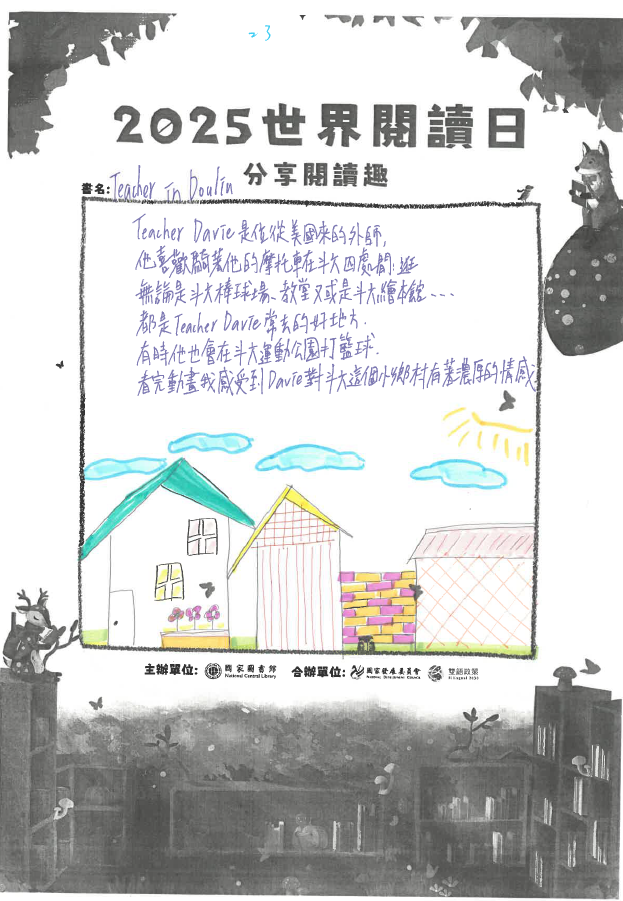 = 3
2025世界閱讀日
分享閱讀趣
書名: Teacher in Doulin
Teacher Davie是位從美國來的外師,
他喜歡騎著他的摩托車在斗六四處閒逛
無論是斗六棒球場、教堂又或是斗六繪本館、、、
都是Teacher Davie常去的好地方.
有時他也會在斗六運動公園打籃球.
看完動畫我感受到Davie對斗六這個小鄉村有著濃厚的情感
主辦單位: 國家圖書館 合辦單位: 國家發展委員會 雙語政策
National Central Library National Development Council Bilingual 2030